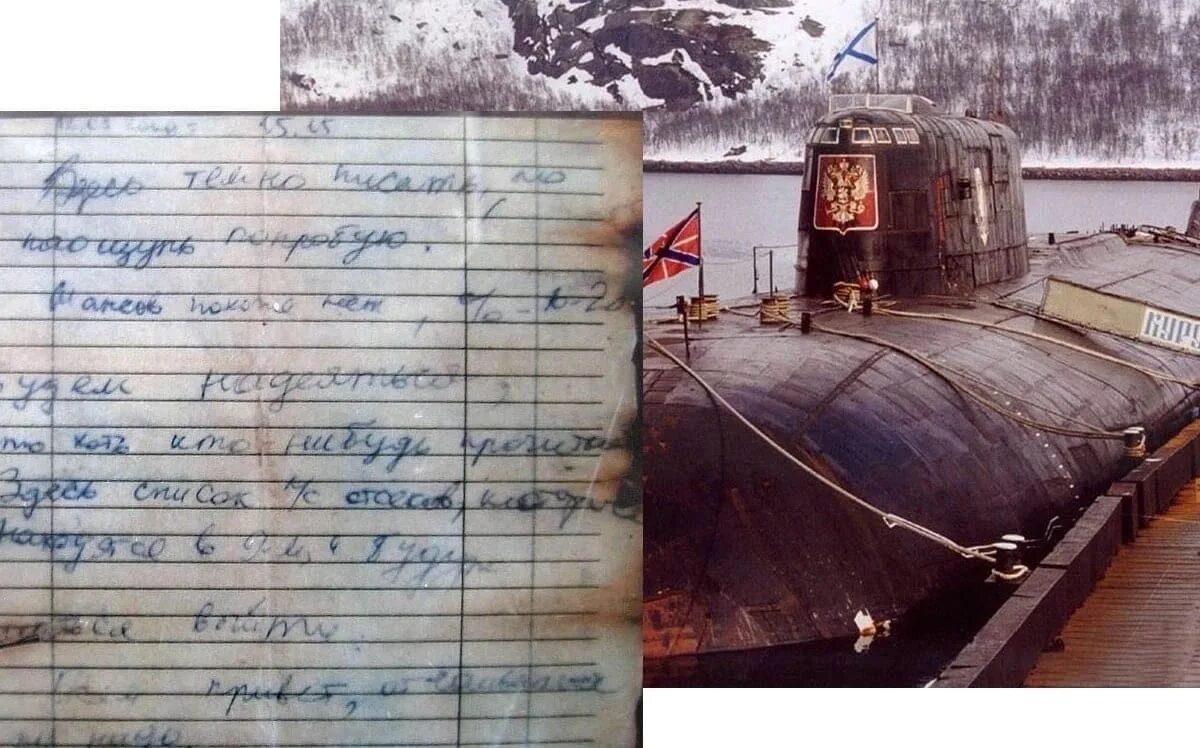 Здесь темно писать, но
наощупь попробую.
Шансов похоже нет, % - 10-20
удем надеяться,
то хоть кто-нибудь прочитает
Здесь список л/с отсеков, которые
находятся в 9-м и будут
выйти.
привет, отчаиваться
не надо.
КУР